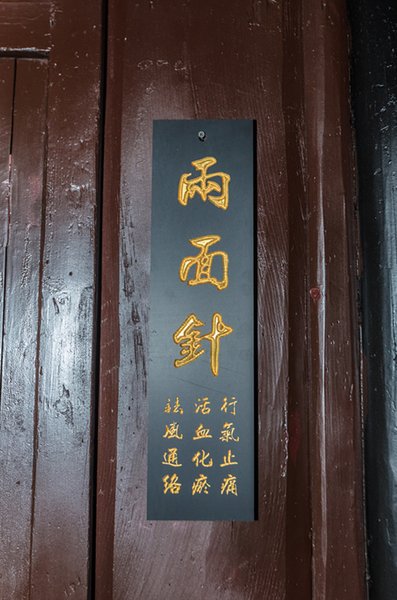 兩面針
行氣止痛
活血化瘀
祛風通絡